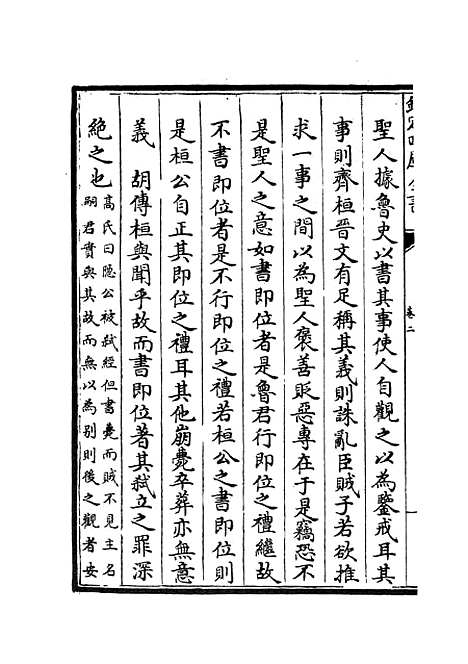 欽定四庫全書
卷二
聖人據魯史以書其事使人自觀之以為鑒戒耳其
事則齊桓晉文有足稱其義則誅亂臣賊子若欲推
求一事之間以為聖人褒善貶惡專在于是竊恐不
是聖人之意如書即位者是魯君行即位之禮繼故
不書即位者是不行即位之禮若桓公之書即位則
是桓公自正其即位之禮耳其他崩薨卒葬亦無意
義 胡傳桓與聞乎故而書即位著其弑立之罪深
絕之也
高氏曰隱公被弑經但書薨而賊不見主名
嗣君實與其故而無以為別則後之觀者安